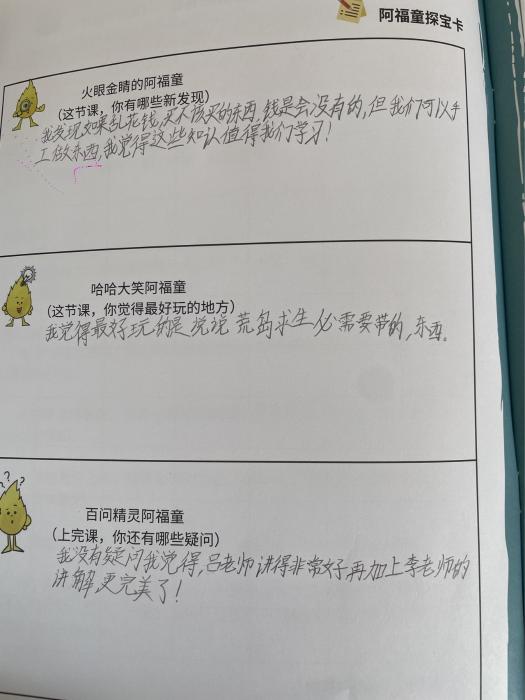 阿福童探宝卡
火眼金睛的阿福童
（这节课，你有哪些新发现）
我发现如果乱花钱，买不该买的东西，钱是会没有的，但我们可以手
工做东西，我觉得这些知认值得我们学习！
哈哈大笑阿福童
（这节课，你觉得最好玩的地方）
我觉得最好玩的是说说荒岛求生必需要带的，东西。
百问精灵阿福童
（上完课，你还有哪些疑问）
我没有疑问我觉得，吕老师讲得非常好，再加上李老师的
讲解，更完美了！